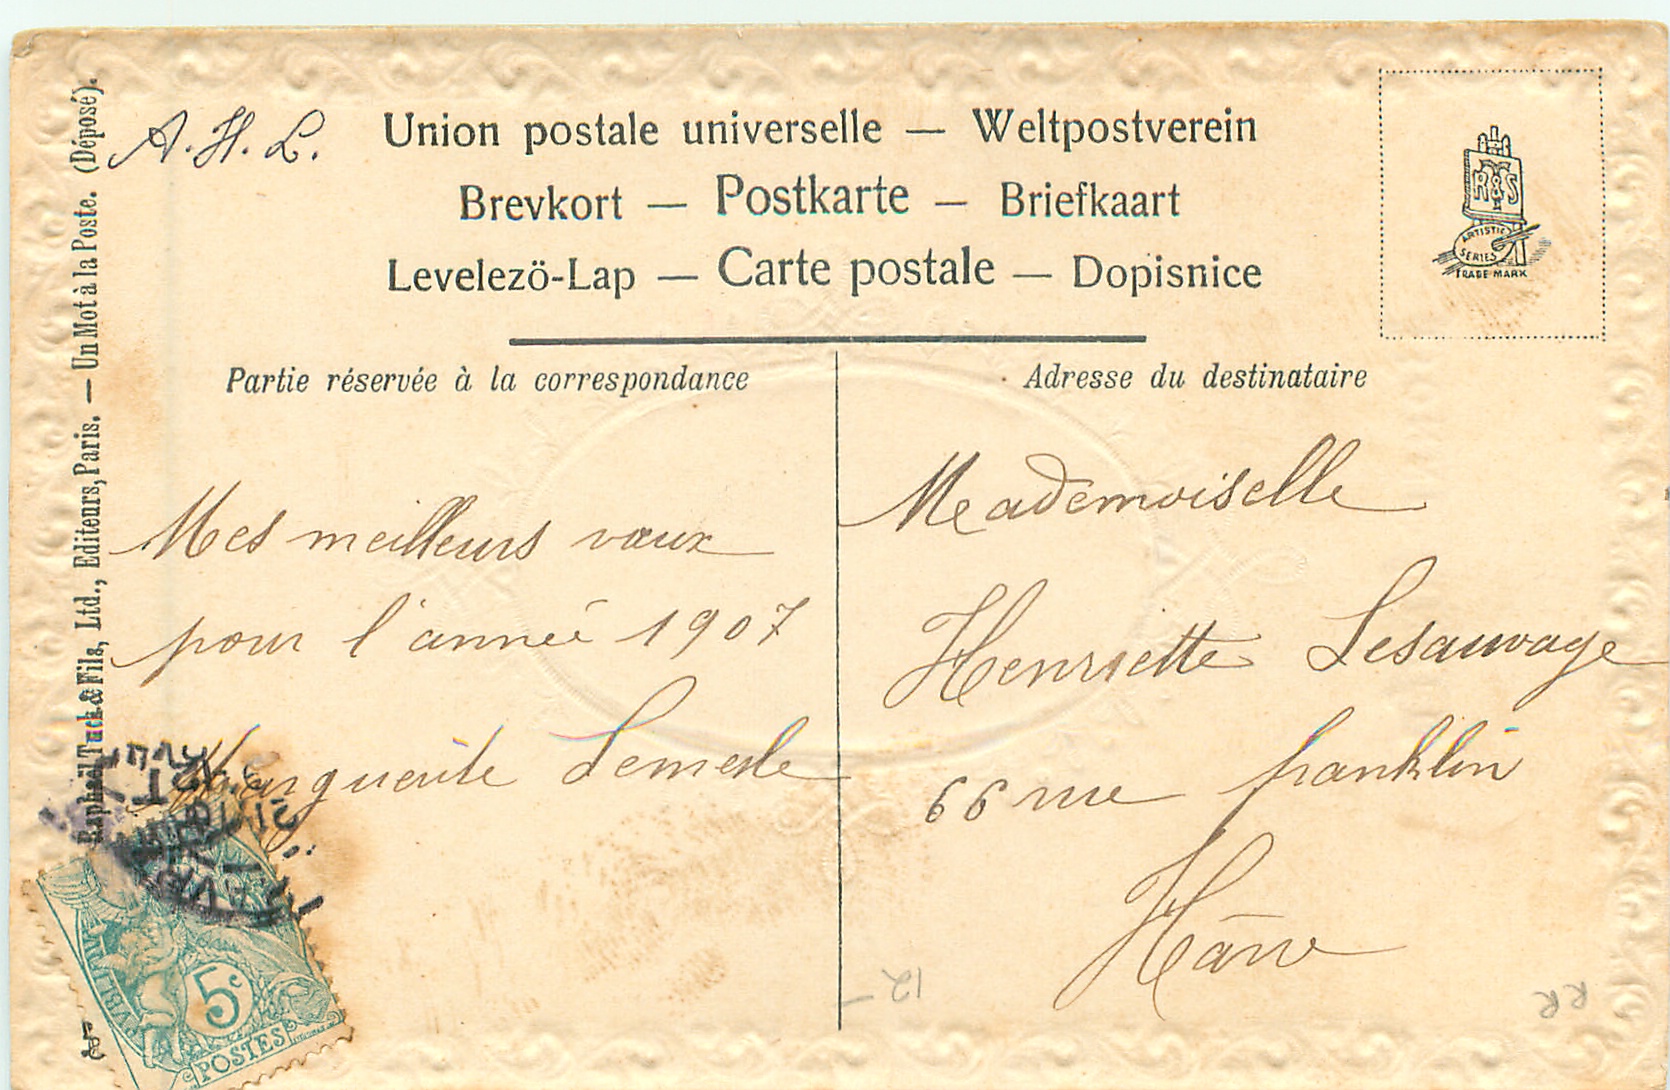 A. H. L.
Union postale universelle — Weltpostverein
Brevkort — Postkarte — Briefkaart
Levelezö-Lap — Carte postale — Dopisnice
R & S
ARTISTIC
SERIES
TRADE MARK
Raphael Tuck & Fils, Ltd., Editeurs, Paris. — Un Mot à la Poste. (Déposé).
Partie réservée à la correspondance
Mes meilleurs vœux
pour l'année 1907
Marguerite Lemesle
Adresse du destinataire
Mademoiselle
Henriette Lesauvage
66 rue franklin
Hâvre
5c
POSTES
12-
RR